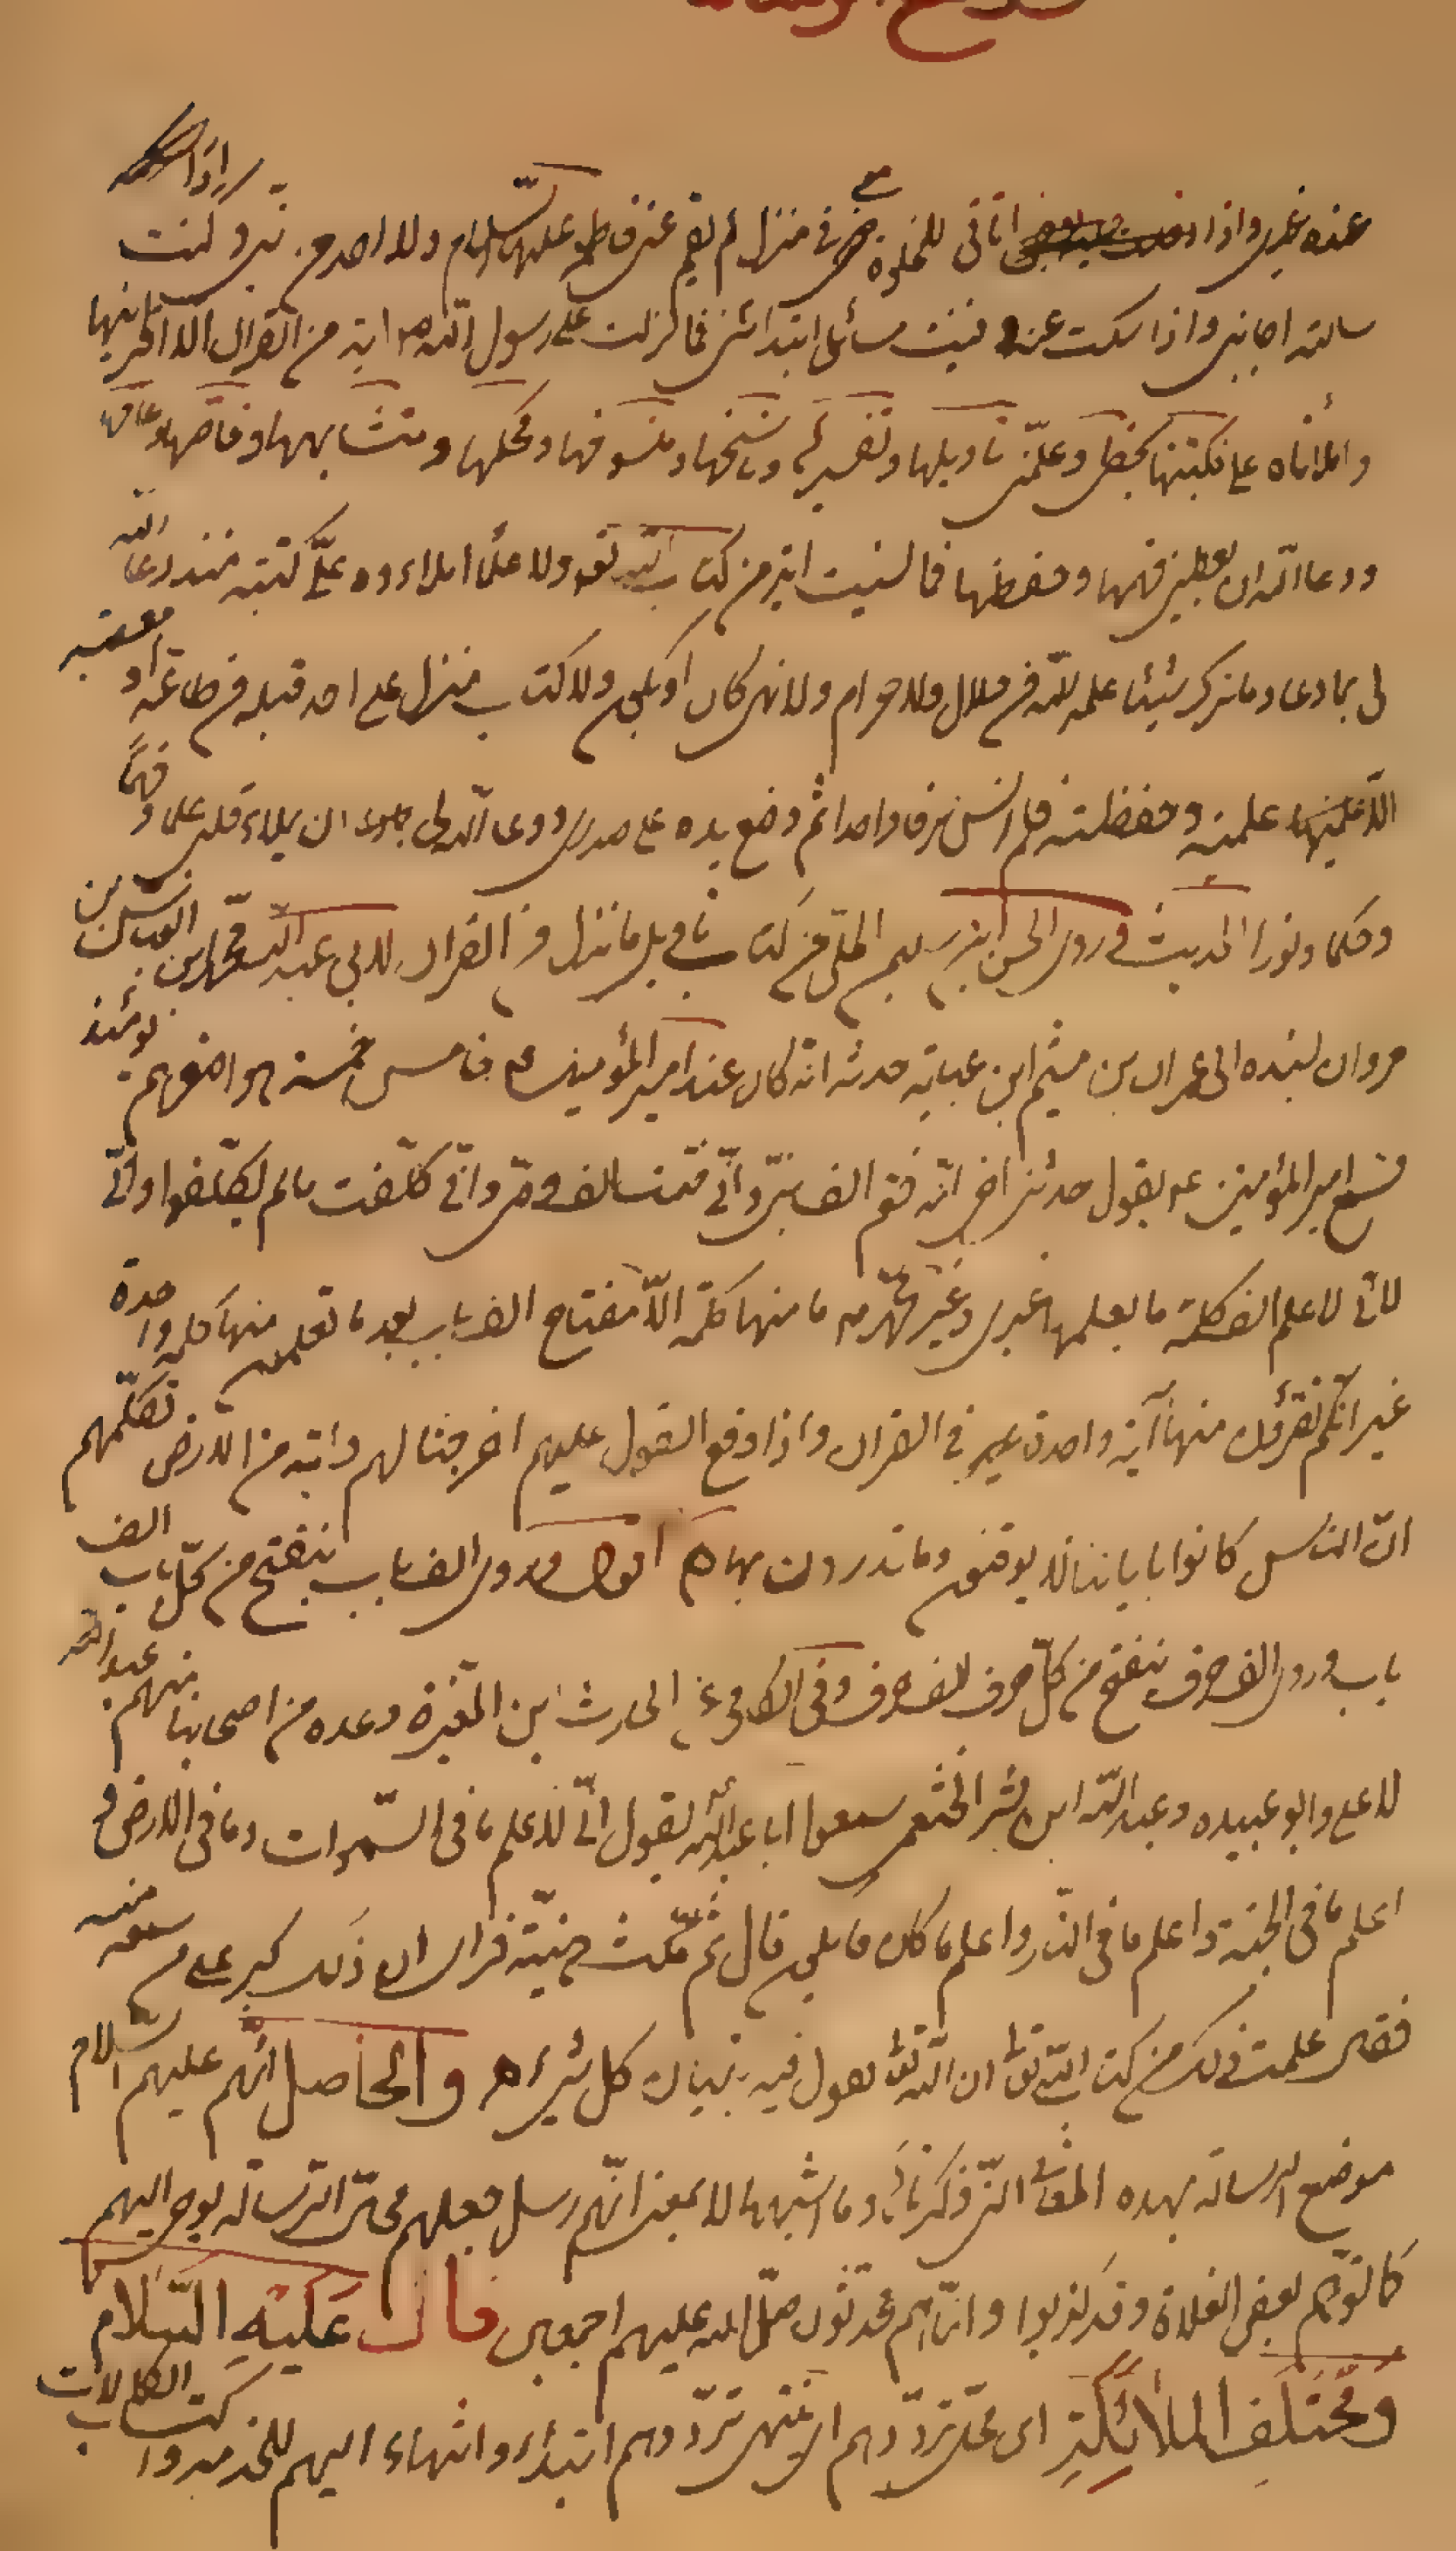 عنده غيري واذا اتاني للخلوة معي في منزلي لم يقم عني فاطمة عليها السلام ولا احد من بنيّ وكنت اذا
سالته اجابني واذا سكت عنه وفنيت مسائلي ابتدائني فما نزلت على رسول الله ص اية من القران الا اقرانيها
واملاها على فكتبتها بخطي وعلّمني تاويلها وتفسيرها وناسخها ومنسوخها ومحكمها ومتشابهها وخاصها وعامها
ودعا الله ان يعطيني فهمها وحفظها فما نسيت اية من كتاب الله تعه ولا علما املاءه علىّ وكتبته منذ دعا الله
لي بما دعا وما ترك شيئا علمه الله من حلال ولا حرام ولا نهي كان او يكون ولا كتاب منزل على احد قبله من طاعة او معصيه
الا علمنيه وحفظته فلم انس حرفا واحدا ثم وضع يده على صدري ودعا الله لي ان يملاء قلبي علما وفهما
وحكما ونورا الحديث وروى الحسن ابن سليمن الحلّي من كتاب تاويل ما نزل من القران لابي عبد الله محمد بن العباس بن
مروان بسنده الى عمران بن ميثم ابن عباية حدثه انه كان عند امير المؤمنين ع خامس خمسة هو اصغرهم يومئذ
فسمع امير المؤمنين ع يقول حدثني اخي انه ختم الف نبيّ وانّي ختمت الف وصيّ وانّي كلّفت مالم يكلّفوا وانّي
لاني لاعلم الف كلمة ما يعلمها غيري وغير محمّد ص ما منها كلمة الّا مفتاح الف باب بعد ما تعلمون منها كلمة واحدة
غير انّكم تقرؤن منها آية واحدة في القران واذا وقع القول عليهم اخرجنا لهم دابّة من الارض تكلّمهم
انّ الناس كانوا باياتنا لا يوقنون وما تدرون بها ه اقول وروى الف باب ينفتح من كلّ باب الف
باب وروى الف حرف ينفتح من كلّ حرف الف حرف وفي الكافي عن الحارث ابن المغيرة وعده من اصحابنا منهم عبد الله
الاعلى وابو عبيده وعبد الله ابن بشر الخثعمي سمعوا ابا عبد الله يقول انّي لاعلم ما في السّموات وما في الارض و
اعلم ما في الجنة واعلم ما في النّار واعلم ما كان وما يكون قال ثم مكث هنيئة فراى ان ذلك كبر على من سمعه منه
فقال علمت ذلك من كتاب الله تع ان الله تع يقول فيه تبيان كل شيء ه والحاصل انّهم عليهم السّلام
موضع الرسالة بهذه المعاني التي ذكرناها وما اشبهها لا بمعنى انّهم رسل جعلهم محلّ الرّسالة يوحى اليهم
كما توّهم بعض الغلاة وقد كذبوا وانّما هم محدّثون صلّى الله عليهم اجمعين قال عَليْهِ السَّلام
وَمُخْتَلَفَ المَلائِكَةِ اى محلّ تردّدهم او منتهى تردّدهم ابتداء وانتهاء اليهم للخدمه واكتساب الكمالات